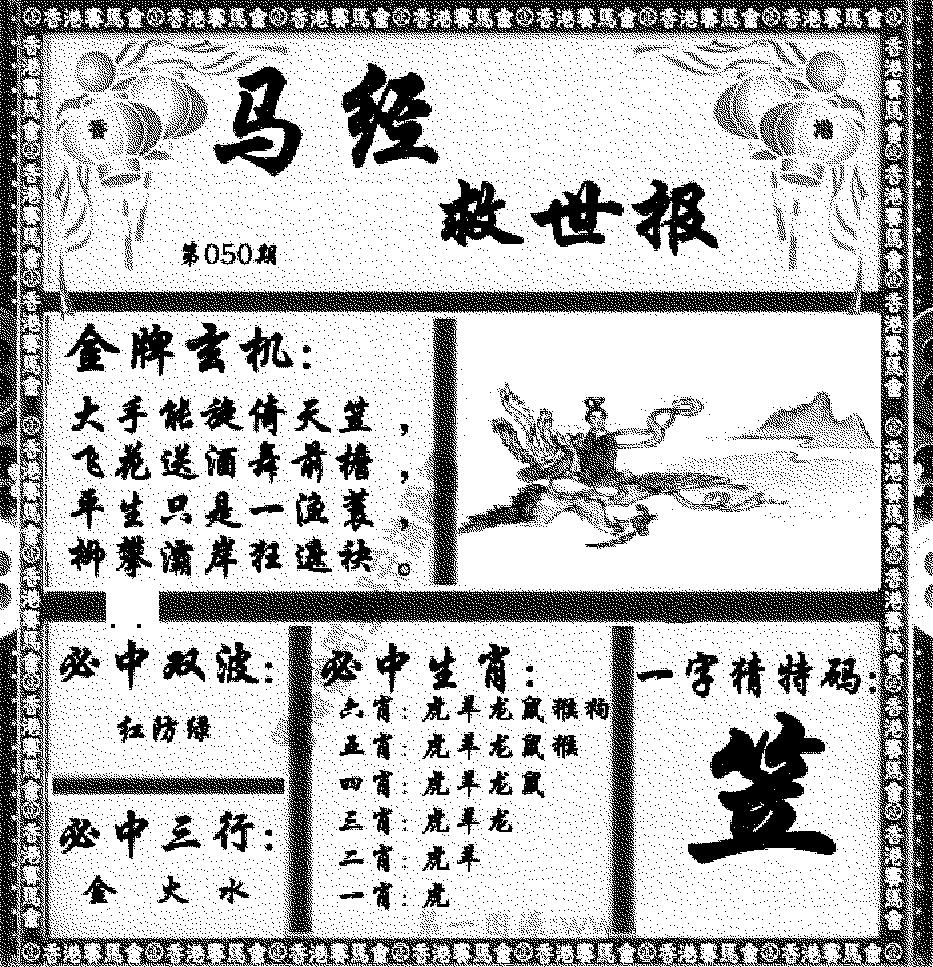 香港賽馬會 香港賽馬會 香港賽馬會 香港賽馬會 香港賽馬會 香港賽馬會 香港賽馬會
香 港
马 经
救世报
第050期
金牌玄机:
大手能旋倚天笠,
飞花送酒舞前檐,
平生只是一渔蓑,
柳攀灞岸狂遮袂。
必中双波:
红防绿
必中三行:
金 火 水
必中生肖:
六肖: 虎羊龙鼠猴狗
五肖: 虎羊龙鼠猴
四肖: 虎羊龙鼠
三肖: 虎羊龙
二肖: 虎羊
一肖: 虎
一字猜特码:
笠
香港賽馬會 香港賽馬會 香港賽馬會 香港賽馬會 香港賽馬會 香港賽馬會 香港賽馬會